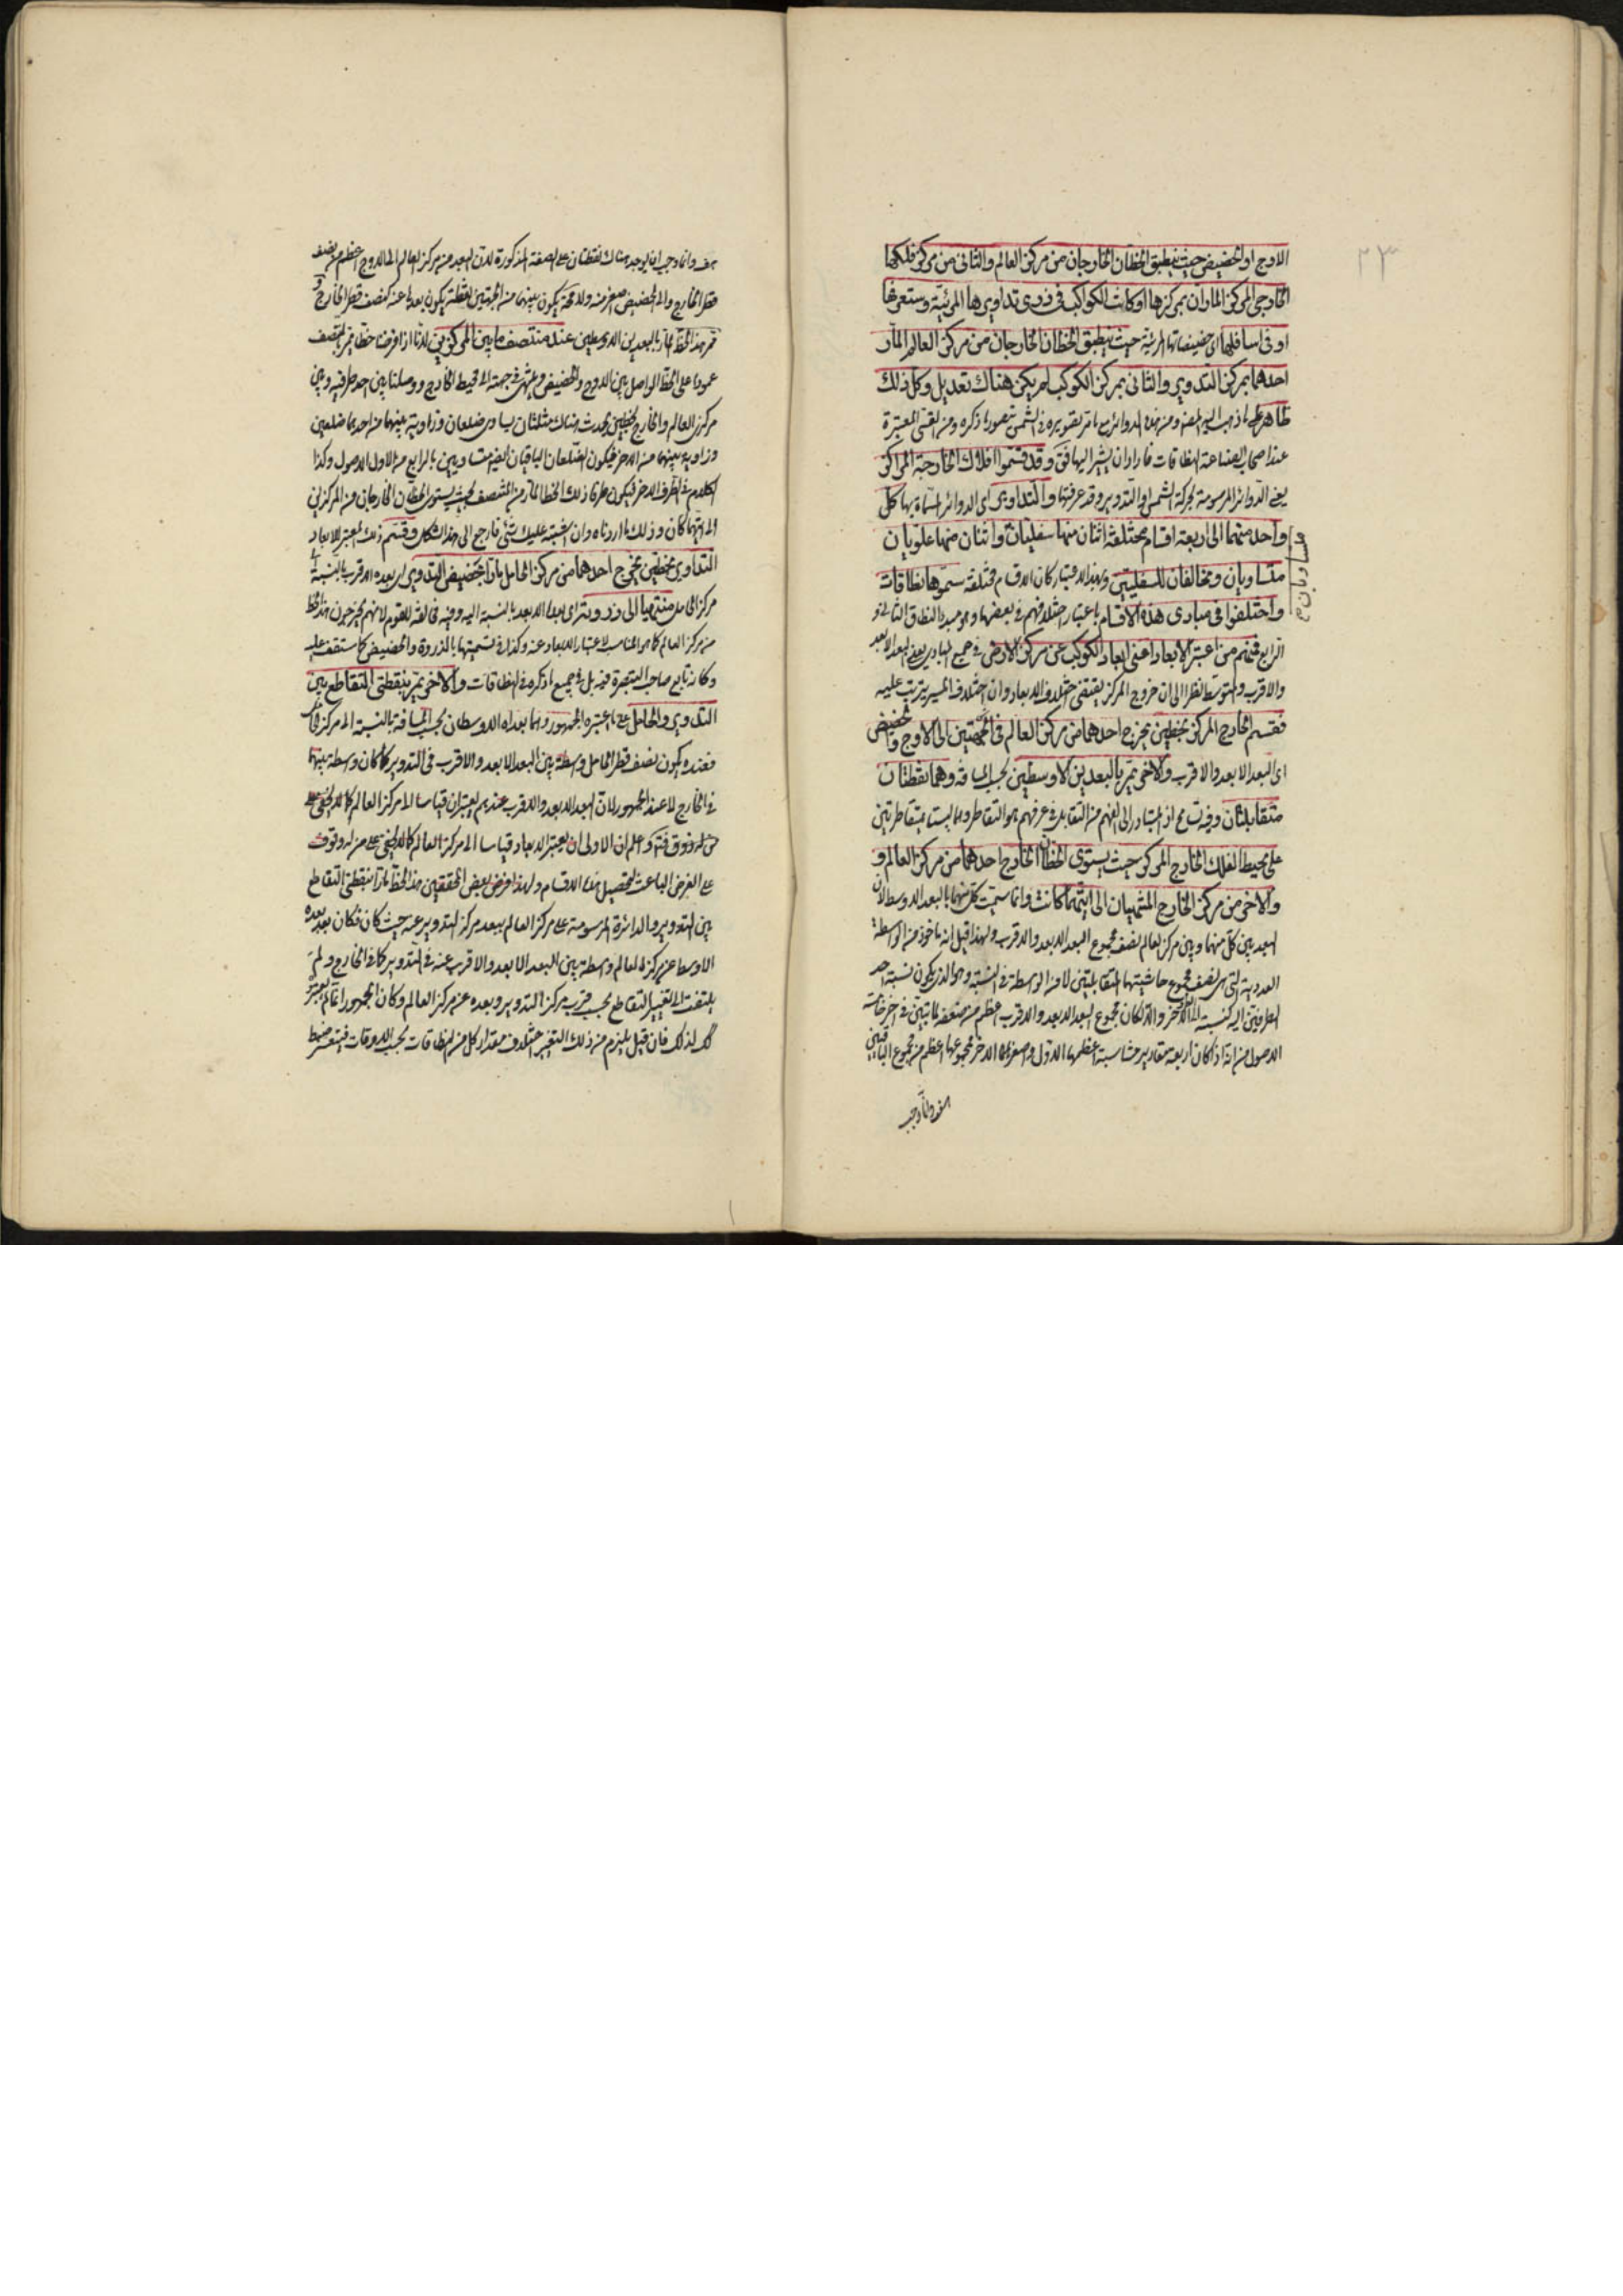 ٢٣
الاوج او الحضيض حيث ينطبق الخطان الخارجان من مركز العالم والثانى من مركز فلكها
الخارجى المركز الماران بمركزها او كانت الكواكب فى ذرى تداويرها المرئية وستعرفها
او فى اسافلها اى حضيضاتها المرئية حيث ينطبق الخطان الخارجان من مركز العالم المار
احدهما بمركز التدوير والثانى بمركز الكوكب لم يكن هناك تعديل وكل ذلك
ظاهر
عند اصحاب الصناعة النطاقات فاراد ان يشير اليها فقال وقد قسموا افلاك الخارجة المراكز
يعنى الدوائر المرسومة بحركة الشمس او التدوير وقد عرفتها والتداوير اى الدوائر المسماة بها كل
واحد منهما الى اربعة اقسام مختلفة اثنان منها سفليان واثنان منها علويان
متساويان
متساويان ومخالفان للسفليين وبهذا الاعتبار كان الاقسام مختلفة سموها نطاقات
واختلفوا فى مبادى هذه الاقسام باعتبار اختلافهم فى بعضها وهو مبدء النطاق الثانى و
الرابع فمنهم من اعتبر الابعاد اعنى ابعاد الكوكب عن مركز الارض فى جميع المبادى يعنى البعد الابعد
والاقرب والمتوسط نظرا الى ان خروج المركز يقتضى اختلاف الابعاد وان اختلاف المسير يترتب عليه
فقسم الخارج المركز بخطين يخرج احدهما من مركز العالم فى الجهتين الى الاوج والحضيض
اى البعد الابعد والاقرب والاخر يمر بالبعدين الاوسطين بحسب المسافة وهما نقطتان
متقابلتان وفيه تسامح اذ المتبادر الى الفهم من التقابل فى عرفهم هو التقاطر وهما ليستا متقاطرتين
على محيط الفلك الخارج المركز حيث يستوى الخطان الخارج احدهما من مركز العالم و
والاخر من مركز الخارج المنتهيان الى ايتهما كانت وانما سميت كل منهما بالبعد الاوسط لان
البعد بين كل منهما وبين مركز العالم نصف مجموع البعد الابعد والاقرب ولهذا قيل انه ماخوذ من الواسطة
العددية التى هى نصف مجموع حاشيتها المتقابلتين لا من الواسطة فى النسبة وهو الذى يكون نسبة احد
الطرفين اليه كنسبته الى الاخر والا لكان مجموع البعد الابعد والاقرب اعظم من ضعفه لما تبين فى آخر خامسة
الاصول من انه اذا كان اربعة مقادير متناسبة اعظمها الاول واصغرها الاخر فمجموعهما اعظم من مجموع الباقيين
هف وانما وجب ان يوجد هناك نقطتان على الصفة المذكورة لان البعد من مركز العالم الى الاوج اعظم من نصف
قطر الخارج والى الحضيض اصغر منه ولا محة يكون بينهما من الجهتين نقطة يكون بعدها عنه كنصف قطر الخارج و
يمر هذا الخط المار بالبعدين الاوسطين عند منتصف ما بين المركزين لانا اذا فرضنا خطا يمر بالمنتصف
عمودا على الخط الواصل بين الاوج والحضيض وينتهى فى جهتيه الى محيط الخارج ووصلنا بين احد طرفيه وبين
مركزى العالم والخارج بخطين يحدث هناك مثلثان يساوى ضلعان وزاوية بينهما من احدهما ضلعين
وزاوية بينهما من الاخر فيكون الضلعان الباقيان ايضا متساويين بالرابع من الاولى الاصول وكذا
الكلام فى الطرف الاخر فيكون طرفا ذلك الخط المار من المنتصف بحيث يستوى الخطان الخارجان من المركزين
الى ايتهما كان وذلك ما اردناه وان اشتبه عليك شئ فارجع الى هذا الشكل وقسم ذلك المعتبر للابعاد
التداوير بخطين يخرج احدهما من مركز الحامل مارا بحضيض التدوير اى بعده الاقرب بالنسبة الى
مركز الحامل منتهيا الى ذروته اى بعده الابعد بالنسبة اليه وفيه مخالفة للقوم لانهم يخرجون هذا الخط
من مركز العالم كما هو المناسب لاعتبار الابعاد عنه وكذا فى تسميتها بالذروة والحضيض كما ستقف عليه
وكانه تابع صاحب التبصرة فيه بل فى جميع ما ذكره فى النطاقات والاخر يمر بنقطتى التقاطع بين
التدوير والحامل على ما اعتبره الجمهور وهما بعداه الاوسطان بحسب المسافة بالنسبة الى مركز الحامل
فعنده يكون نصف قطر الحامل واسطة بين البعد الابعد والاقرب فى التدوير كما كان واسطة بينهما
فى الخارج لا عند الجمهور لان البعد الابعد والاقرب عندهم يعتبران قياسا الى مركز العالم كما لا يخفى على
من له ذوق فيه واعلم ان الاولى ان يعتبر الابعاد قياسا الى مركز العالم كما لا يخفى على من له وقوف
على الغرض الباعث لتحصيل هذه الاقسام ولهذا فرض بعض المحققين هذا الخط مارا بنقطتى التقاطع
بين التدوير والدائرة المرسومة على مركز العالم ببعد مركز التدوير عنه حيث كان فكان بعد بعده
الاوسط عن مركز العالم واسطة بين البعد الابعد والاقرب عنه فى التدوير كما فى الخارج ولم
يلتفت الى تغيير التقاطع بحسب قرب مركز التدوير وبعده عن مركز العالم وكان الجمهور انما لم يعتبروا
لذلك فان قيل يلزم من ذلك التغير اختلاف مقدار كل من النطاقات بحسب الاوقات فيتعسر ضبط